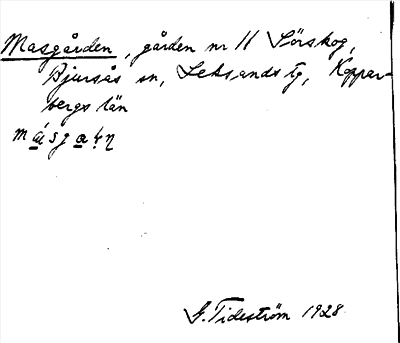 Masgården, gården nr 11 Sörskog,
Bjursås sn, Leksands tg, Koppar-
bergs län
G. Tideström 1928